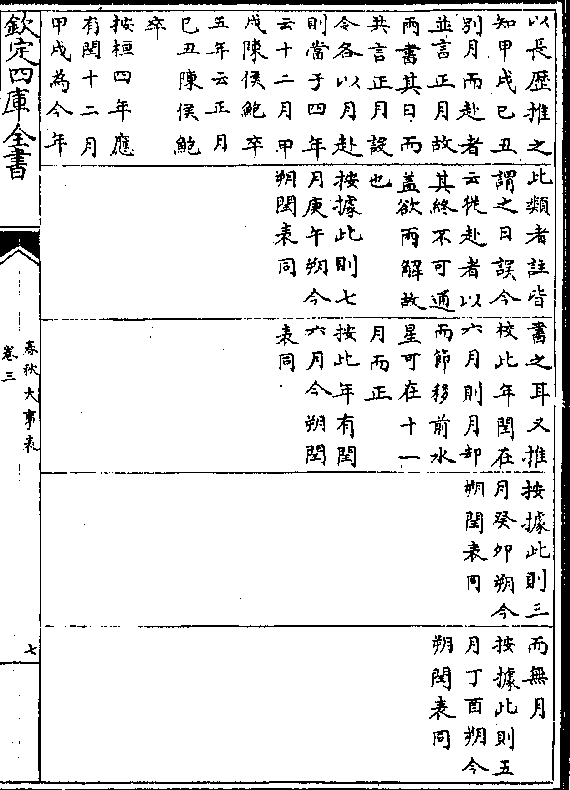 以長厯推之
知甲戌己丑
別月而赴者
並言正月故
兩書其日而
共言正月設
令各以月赴
則當于四年
云十二月甲
戌陳侯鮑卒
五年云正月
己丑陳侯鮑
卒
按桓四年應
有閏十二月
甲戌為今年
此類者註皆
謂之日誤今
云從赴者以
其終不可通
蓋欲兩解故
也
按據此則七
月庚午朔今
朔閏表同
書之耳又推
校此年閏在
六月則月却
而節移前水
星可在十一
月而正
按此年有閏
六月今朔閏
表同
按據此則三
月癸卯朔今
朔閏表同
而無月
按據此則五
月丁酉朔今
朔閏表同
欽定四庫全書
春秋大事表
卷三
七